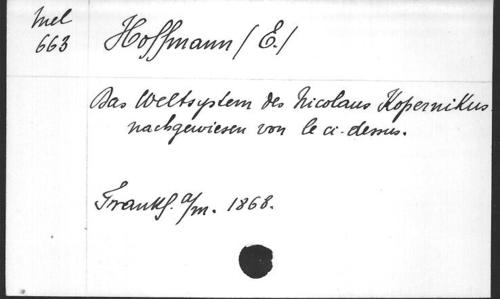 Mel
663
Hoffmann (E.)
Das Weltsystem des Nicolaus Kopernikus
nachgewiesen von le ci-dessus.
Frankf. a/m. 1868.